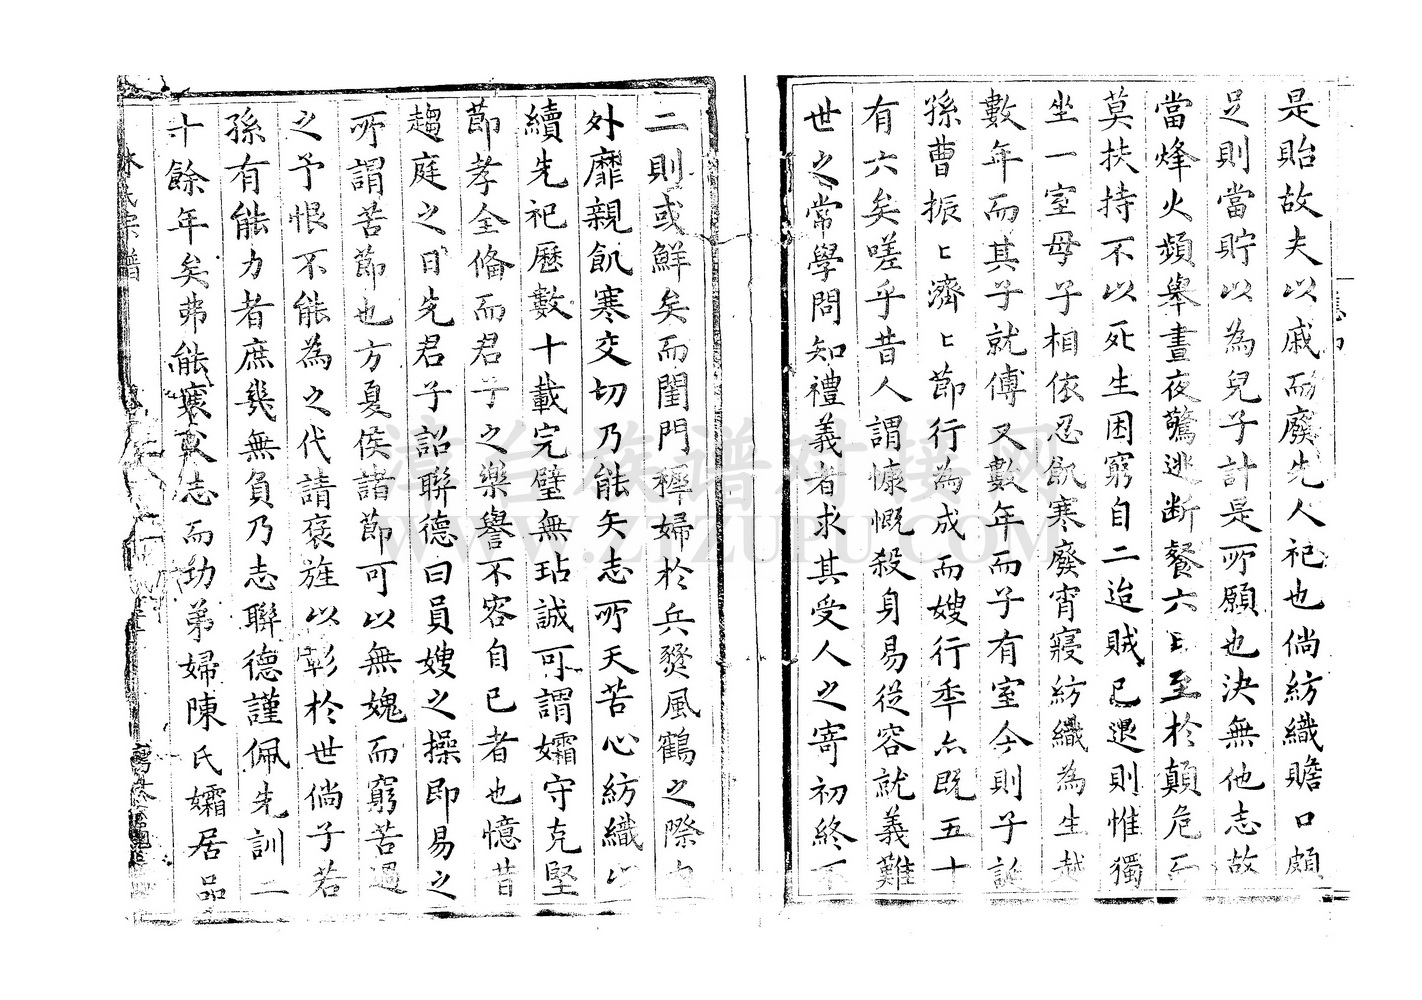 是貽故夫以戚而廢先人祀也倘紡織贍口頗
足則當貯以為兒子計是所願也決無他志故
當烽火頻舉晝夜驚逃斷餐六七至於顛危而
莫扶持不以死生困窮自二迨賊已退則惟獨
坐一室母子相依忍飢寒廢宵寢紡織為生越
數年而其子就傅又數年而子有室今則子誕
孫曹振〻濟〻節行為成而嫂行年亦既五十
有六矣嗟乎昔人謂慷慨殺身易從容就義難
世之常學問知禮義者求其受人之寄初終不
二則或鮮矣而閨門穉婦於兵燹風鶴之際
外靡親飢寒交切乃能矢志所天苦心紡織以
續先祀歷數十載完璧無玷誠可謂孀守克堅
節孝全偹而君子之樂譽不容自已者也憶昔
趨庭之日先君子詔聯德曰員嫂之操即易之
所謂苦節也方夏侯諸節可以無媿而窮苦過
之予恨不能為之代請褒旌以彰於世倘子若
孫有能力者庶幾無負乃志聯德謹佩先訓二
十餘年矣弗能寒又志而功弟婦陳氏孀居品
林氏宗譜
津台族谱对接网
WWW.ZTZUPU.COM